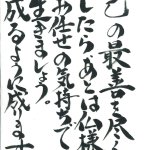 己の最善を尽
したらあとは仏様
お任せの気持ちで
生きましょう。
成るように成ります